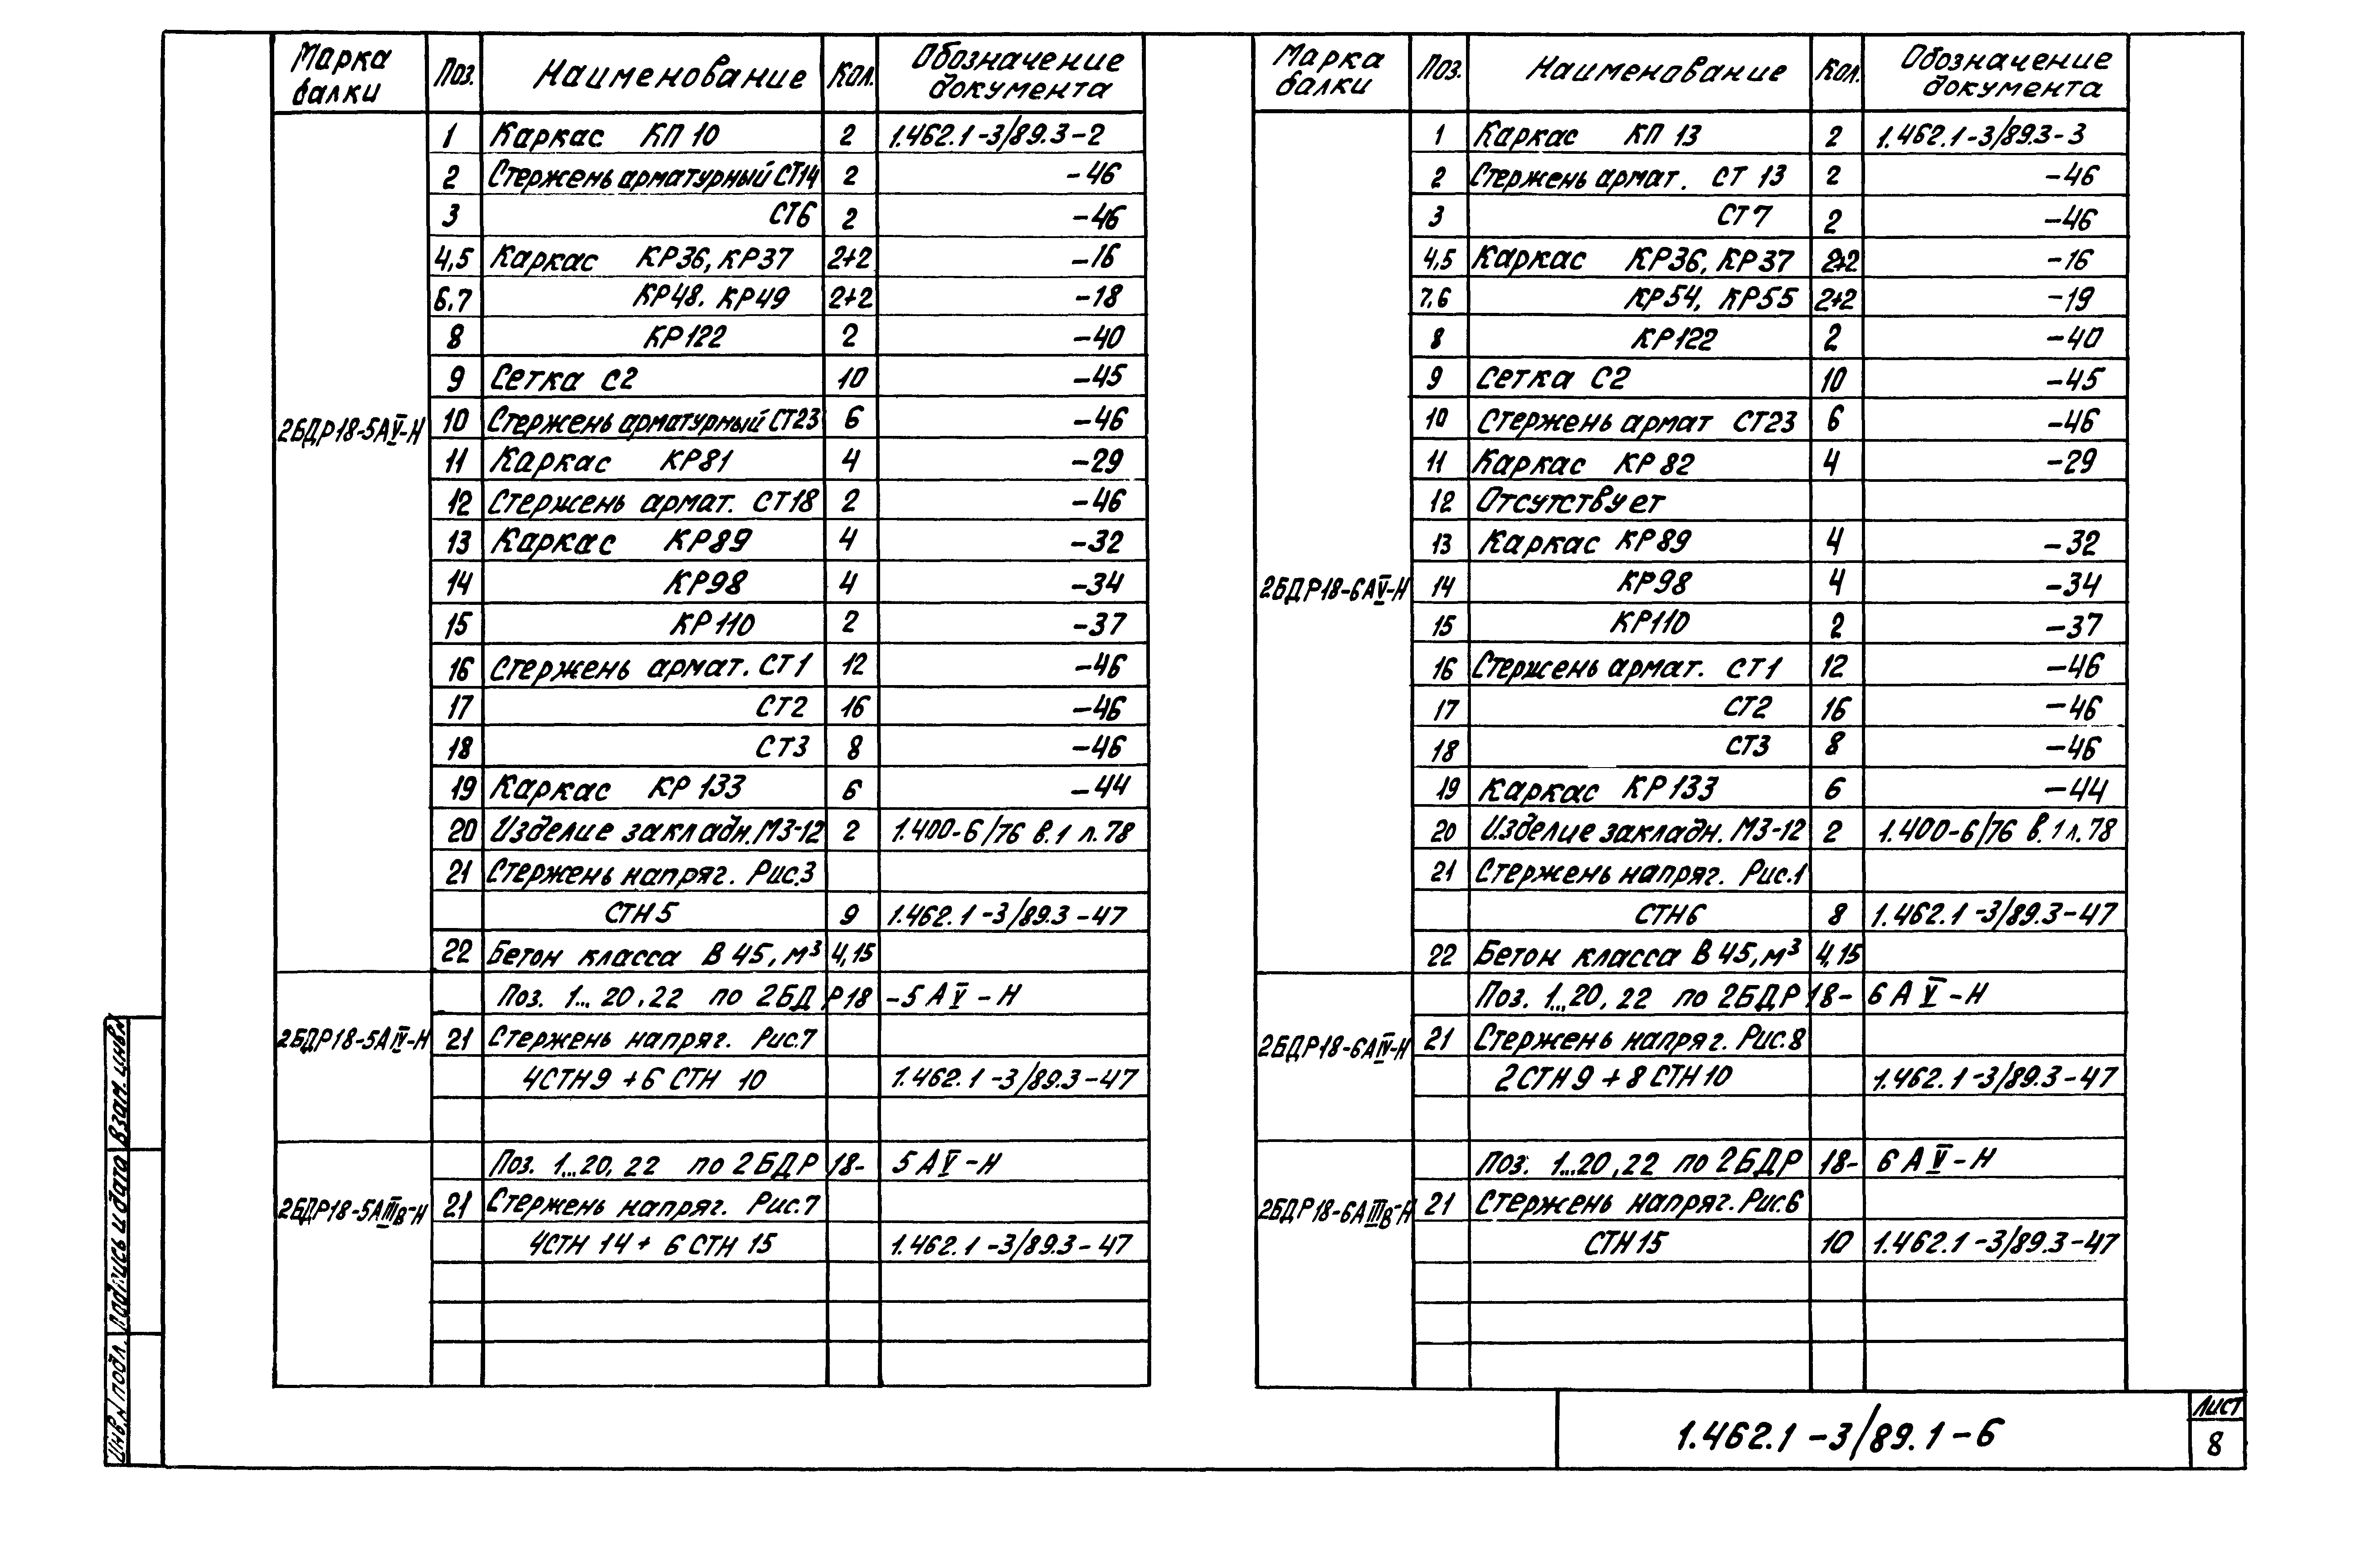 Марка балки Поз. Наименование Кол. Обозначение документа
2БДР18-5АV-Н
1 Каркас КП 10 2 1.462.1-3/89.3-2
2 Стержень арматурный СТ14 2 -46
3 СТ6 2 -46
4,5 Каркас КР36, КР37 2+2 -16
6,7 КР48, КР49 2+2 -18
8 КР122 2 -40
9 Сетка С2 10 -45
10 Стержень арматурный СТ23 6 -46
11 Каркас КР81 4 -29
12 Стержень армат. СТ18 2 -46
13 Каркас КР89 4 -32
14 КР98 4 -34
15 КР110 2 -37
16 Стержень армат. СТ1 12 -46
17 СТ2 16 -46
18 СТ3 8 -46
19 Каркас КР 133 6 -44
20 Изделие закладн. МЗ-12 2 1.400-6/76 в.1 л.78
21 Стержень напряг. Рис.3
СТН5 9 1.462.1-3/89.3-47
22 Бетон класса В 45, м³ 4,15
2БДР18-5АIV-Н
Поз. 1...20,22 по 2БДР18-5АV-Н
21 Стержень напряг. Рис.7
4СТН9 + 6 СТН 10 1.462.1-3/89.3-47
2БДР18-5АIIIв-Н
Поз. 1...20, 22 по 2БДР 18-5АV-Н
21 Стержень напряг. Рис.7
4СТН 14 + 6 СТН 15 1.462.1-3/89.3-47
Марка балки Поз. Наименование Кол. Обозначение документа
2БДР18-6АV-Н
1 Каркас КП 13 2 1.462.1-3/89.3-3
2 Стержень армат. СТ 13 2 -46
3 СТ7 2 -46
4,5 Каркас КР36, КР37 2+2 -16
7,6 КР54, КР55 2+2 -19
8 КР122 2 -40
9 Сетка С2 10 -45
10 Стержень армат СТ23 6 -46
11 Каркас КР 82 4 -29
12 Отсутствует
13 Каркас КР89 4 -32
14 КР98 4 -34
15 КР110 2 -37
16 Стержень армат. СТ1 12 -46
17 СТ2 16 -46
18 СТ3 8 -46
19 Каркас КР133 6 -44
20 Изделие закладн. МЗ-12 2 1.400-6/76 в.1 л.78
21 Стержень напряг. Рис.1
СТН6 8 1.462.1-3/89.3-47
22 Бетон класса В 45, м³ 4,15
2БДР18-6АIV-Н
Поз. 1...20, 22 по 2БДР18-6АV-Н
21 Стержень напряг. Рис.8
2СТН9 + 8 СТН10 1.462.1-3/89.3-47
2БДР18-6АIIIв-Н
Поз. 1...20, 22 по 2БДР 18-6АV-Н
21 Стержень напряг. Рис.6
СТН15 10 1.462.1-3/89.3-47
Инв.N подл. Подпись и дата Взам. инв.N
1.462.1-3/89.1-6
Лист
8